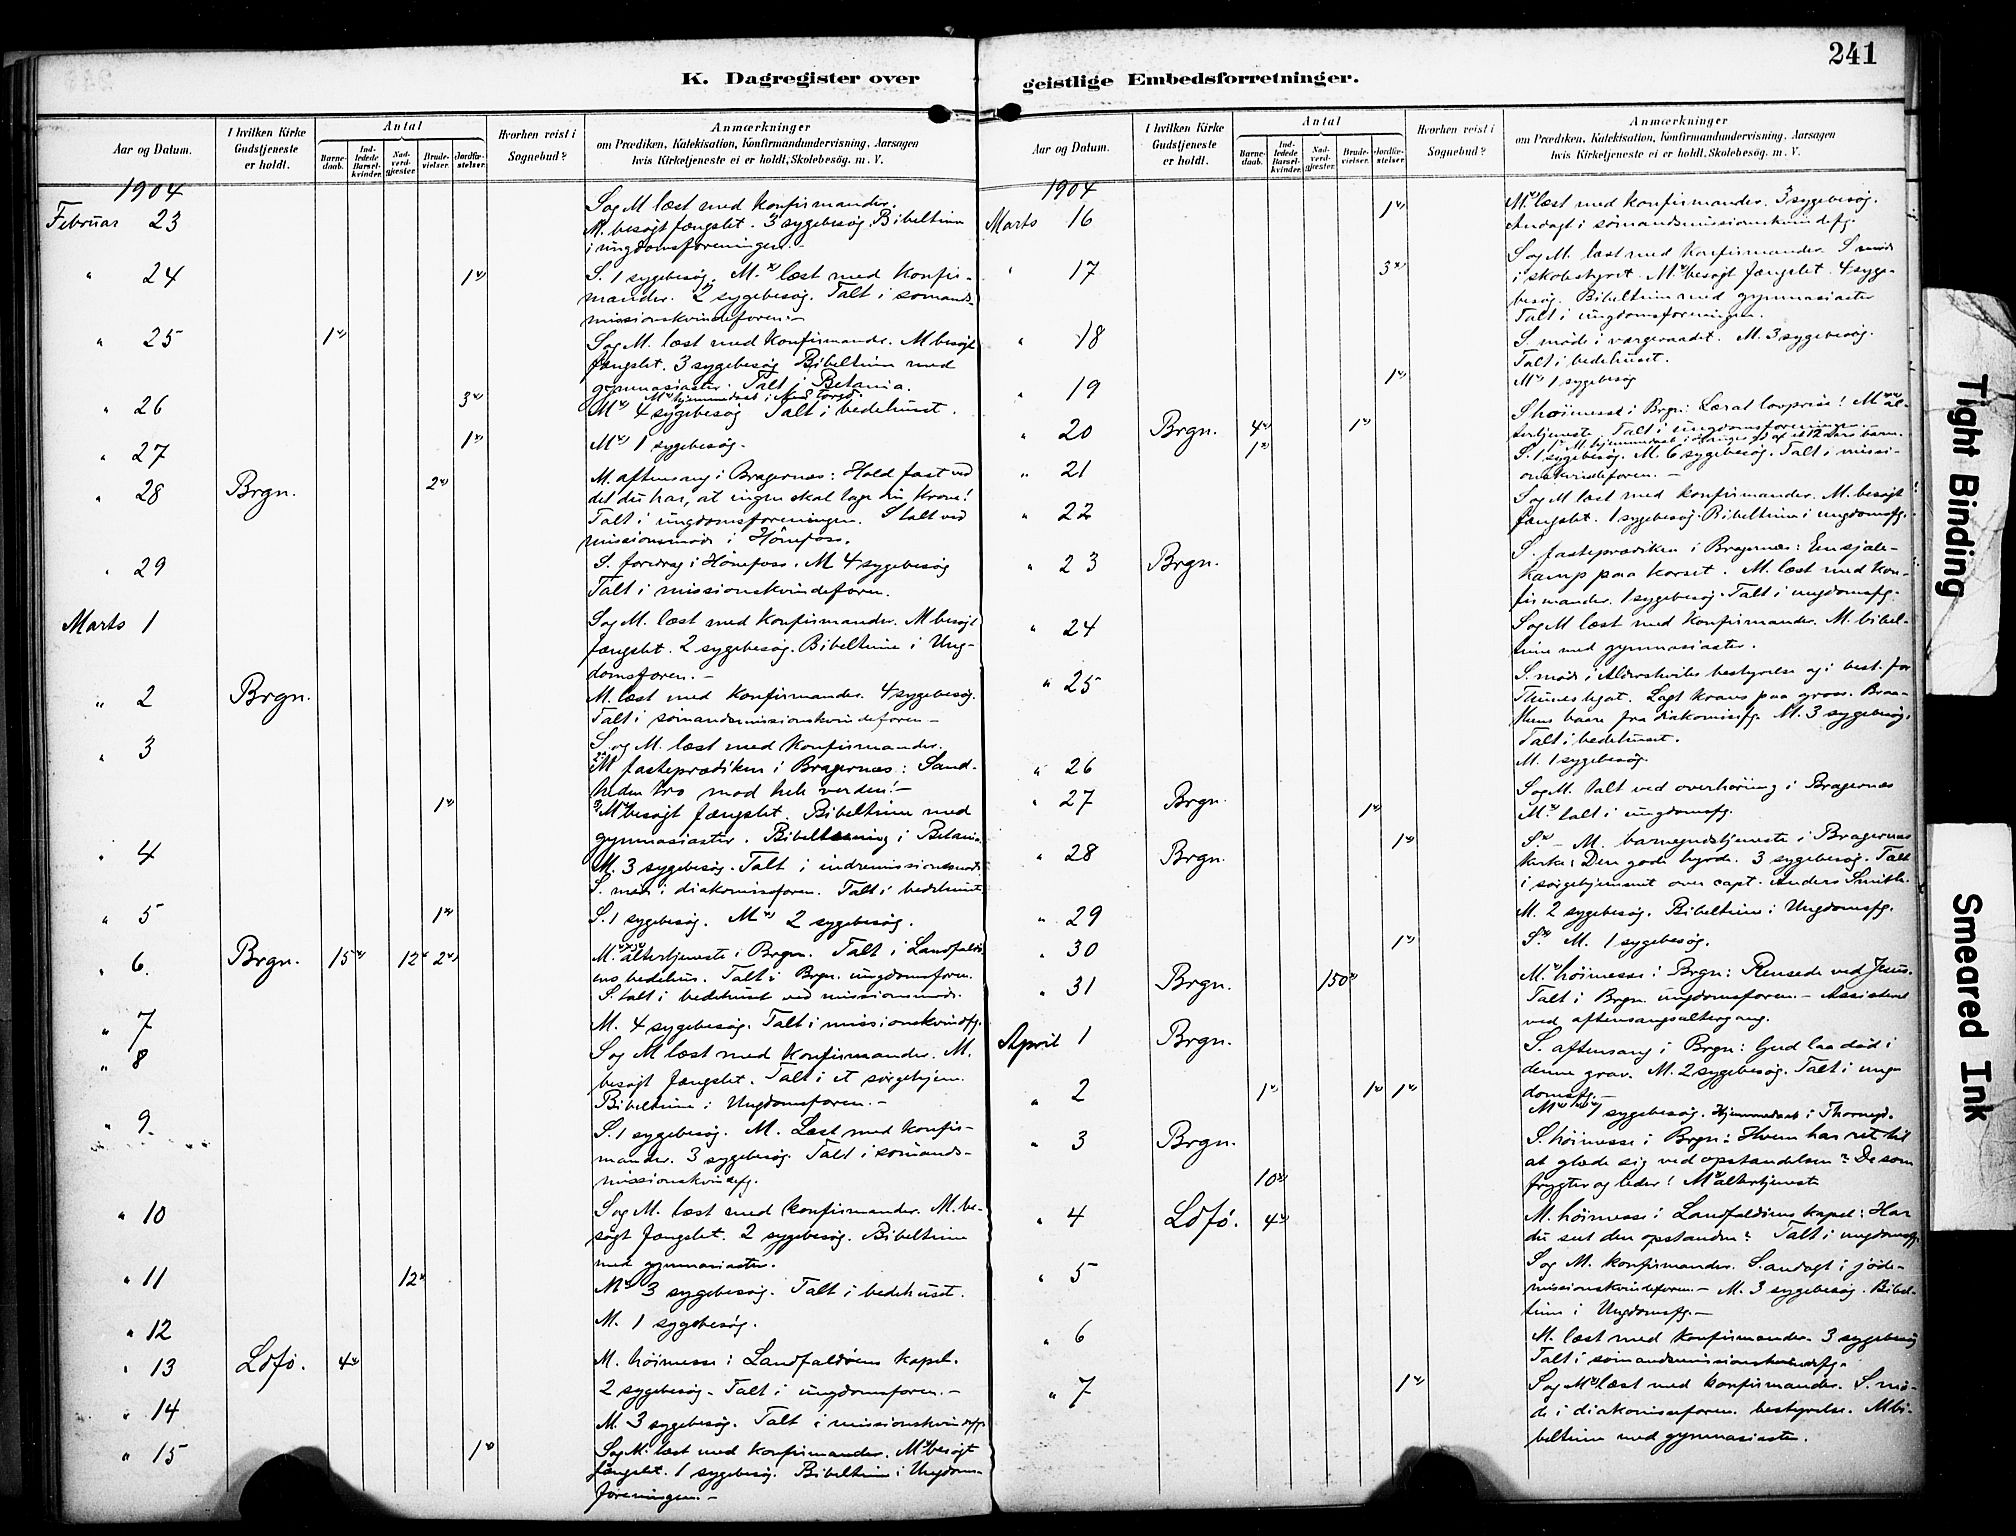 K. Dagregister over geistlige Embedsforretninger.
241
Aar og Datum.
I hvilken Kirke Gudstjeneste er holdt.
Antal
Barnedaab.
Indledede Barselkvinder.
Nadverdgjester.
Brudevielser.
Jordfæstelser.
Hvorhen reist i Sognebud?
Anmærkninger
om Prædiken, Katekisation, Konfirmandundervisning, Aarsagen
hvis Kirketjeneste ei er holdt, Skolebesög. m. V.
1904
Februar 23
S og M læst med konfirmander.
M. besøgt fængslet. 3 sygebesøg. Bibeltime
i ungdomsforeningen.-
" 24 1
S. 1 sygebesøg. M. læst med konfir-
mander. 2 sygebesøg. Talt i sømands-
missionskvindeforen.-
" 25 1
S og M. læst med konfirmander. M besøgt
fængslet. 3 sygebesøg. Bibeltime med
gymnasiaster. Talt i Betania.
" 26 3
M 4 sygebesøg Talt i bedehuset.
" 27 1
M 1 sygebesøg.
" 28 Brgn. 2
M. aftensang i Bragernæs: Hold fast ved
det du har, at ingen skal tage din krone!
Talt i ungdomsforeningen. S talt ved
missionsmøde i Hønefoss.
" 29
S. foredrag i Hønefoss. M 4 sygebesøg
Talt i missionskvindeforen.
Marts 1
S og M. læst med konfirmander. M besøgt
fængslet. 2 sygebesøg. Bibeltime i Ung-
domsforen.-
" 2 Brgn.
M. læst med konfirmander. 4 sygebesøg.
Talt i sømandsmissionskvindeforen-
" 3
S. og M. læst med konfirmander.
M fasteprædiken i Bragernæs: Sand-
heden tro mod hele verden!-
1
M besøgt fængslet. Bibeltime med
gymnasiaster. Bibellæsning i Betania
" 4
M. 3 sygebesøg. Talt i indremissionsmøde
S. møde i diakonissforen. Talt i bedehuset
" 5 1
S. 1 sygebesøg. M 2 sygebesøg.
" 6. Brgn. 15 12 2
M. altertjeneste i Brgn. Talt i Landfaldø-
ens bedehus. Talt i Brgn. ungdomsforen.
S. talt i bedehuset ved missionsmøde.
" 7
M. 4 sygebesøg. Talt i missionskvindefg.
" 8
S og M læst med konfirmander. M.
besøgt fængslet. Talt i et sørgehjem.
Bibeltime i Ungdomsforen.-
" 9
S. 1 sygebesøg. M. Læst med konfir-
mander. 3 sygebesøg. Talt i sømands-
missionskvindefg.
" 10
S og M. læst med konfirmander. M. be-
søgt fængslet. 2 sygebesøg. Bibeltime
med gymnasiaster.
" 11 12
M 3 sygebesøg. Talt i bedehuset.
" 12
M. 1 sygebesøg.
" 13 Ldfø. 4
M. høimesse i Landfaldøens kapel.
2 sygebesøg. Talt i ungdomsforen.-
" 14
M. 3 sygebesøg. Talt i missionskvindefg.
" 15 1
S og M. læst med konfirmander. M besøgt
fængslet. 1 sygebesøg. Bibeltime i Ungdoms-
foreningen.-
Aar og Datum.
I hvilken Kirke Gudstjeneste er holdt.
Antal
Barnedaab.
Indledede Barselkvinder.
Nadverdgjester.
Brudevielser.
Jordfæstelser.
Hvorhen reist i Sognebud?
Anmærkninger
om Prædiken, Katekisation, Konfirmandundervisning, Aarsagen
hvis Kirketjeneste ei er holdt, Skolebesög. m. V.
1904
Marts 16 1
M. læst med konfirmander. 3 sygebesøg.
Andagt i sømandsmissionskvindefg.
" 17 3
S og M. læst med konfirmander. S møde
i skolestyret. M. besøgt fængslet. 4 syge-
besøg. Bibeltime med gymnasiaster
Talt i ungdomsforeningen.
" 18
S. møde i værgeraadet. M. 3 sygebesøg.
Talt i bedehuset.
" 19 1
M 1 sygebesøg
" 20 Brgn. 4 1
S høimesse i Brgn: Lær at lovprise! M al-
tertjeneste. Talt i ungdomsforeningen.-
1
" 21
S. 1 sygebesøg. M. 6 sygebesøg. Talt i missi-
onskvindeforen.-
" 22
S og M læst med konfirmander. M. besøgt
fængslet. 1 sygebesøg. Bibeltime i ungdomsfg.
" 23 Brgn.
S. fasteprædiken i Bragernæs: En sjæle-
kamp paa korset. M. læst med kon-
firmander. 1 sygebesøg. Talt i ungdomsfg.
" 24
S og M læst med konfirmander. M. bibel-
time med gymnasiaster.
" 25
S. møde i Alderskviles bestyrelse og i best. for
Thunes legat. Lagt krans paa gross. Braa-
baare fra diakonissfg. M. 3 sygebesøg.
Talt i bedehuset.
" 26
M. 1 sygebesøg.
" 27 Brgn. 1
S og M. talt ved overhøring i Bragernæs
M. talt i ungdomsfg.
" 28 Brgn. 1
S. - M. barnegudstjeneste i Bragernæs
kirke: Den gode hyrde. 3 sygebesøg. Talt
i sørgehjemmet over capt. Anders Smith.
" 29
M. 2 sygebesøg. Bibeltime i Ungdomsfg.
" 30 1
S. M. 1 sygebesøg.
" 31 Brgn. 150
M. høimesse i Brgn: Rensede ved Jesus.
Talt i Brgn. ungdomsforen.- Assisteret
ved aftensangsaltergang.
April 1 Brgn.
S. aftensang i Brgn: Gud laa død i
denne grav. M. 2 sygebesøg. Talt i ung-
domsfg.-
" 2 1 1 1
M sygebesøg. Hjemmedaab i
" 3 Brgn.
S. høimesse i Brgn: Hvem har ret til
at glæde sig ved opstandelsen? De som
10
frygter og leder! M altertjeneste
" 4 Ldfø. 4
M. høimesse i Landfaldøens kapel: Har
du set den opstandne? Talt i ungdomsfg.
" 5
S og M. konfirmander. S. andagt i jøde-
missionskvindeforen.- M. 3 sygebesøg. Bibel-
time i Ungdomsfg.-
" 6
M. læst med konfirmander. 3 sygebesøg
Talt i sømandsmissionskvindefg.
" 7 1
S og M læst med konfirmander. S. mø-
de i diakonisseforen. bestyrelse. M bi-
beltime med gymnasiaster.
Tight Binding
Smeared Ink